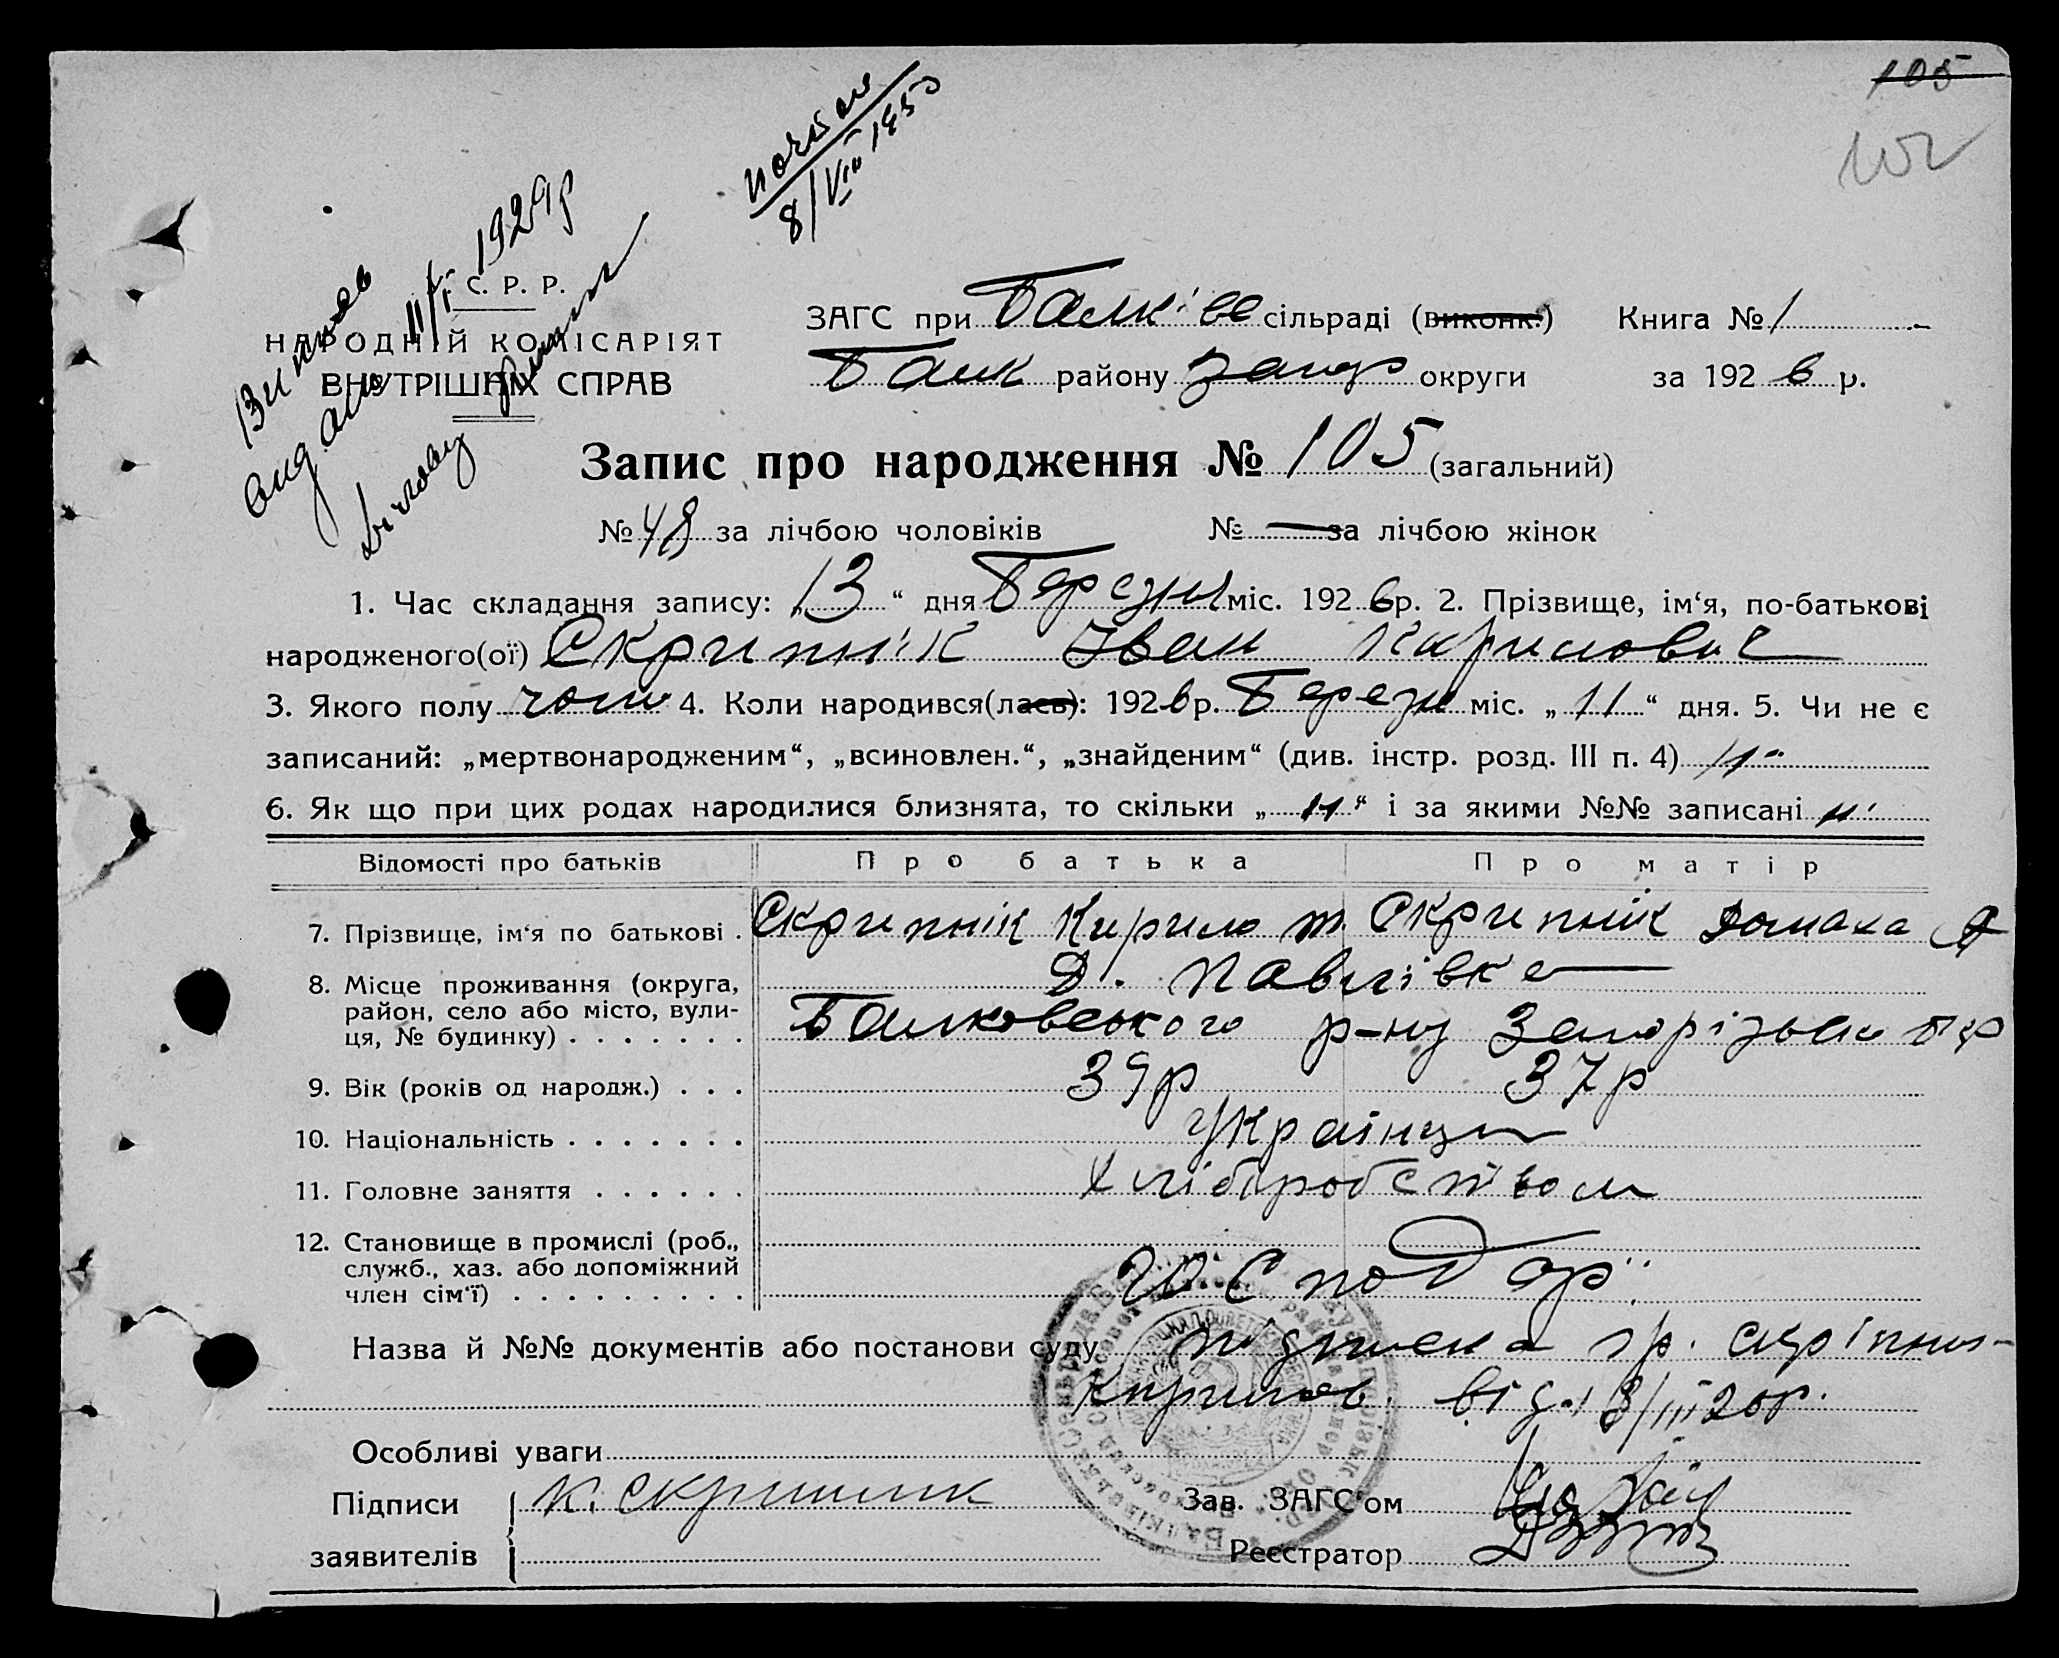 105
102
8/VIII 1950
1929р
С. Р. Р.
НАРОДНІЙ КОМІСАРІЯТ
ВНУТРІШНІХ СПРАВ
ЗАГС при Балків сільраді (виконк.) Книга № 1
Балк району Запор округи за 1926 р.
Запис про народження № 105 (загальний)
№ 48 за лічбою чоловіків № — за лічбою жінок
1. Час складання запису: „13“ дня Березня міс. 1926 р. 2. Прізвище, ім‘я, по-батькові
народженого(ої) Скрипнік Іван Кирилович
3. Якого полу чолов 4. Коли народився(лась): 1926 р. Березня міс. „11“ дня. 5. Чи не є
записаний: „мертвонародженим“, „всиновлен.“, „знайденим“ (див. інстр. розд. III п. 4)
6. Як що при цих родах народилися близнята, то скільки „ “ і за якими №№ записані
Відомості про батьків Про батька Про матір
7. Прізвище, ім‘я по батькові . Скрипнік Кирило т. Скрипнік Домаха
8. Місце проживання (округа, район, село або місто, вули-ця, № будинку) . . . . . . . Д. Павлівка
Балковського р-ну Запорізьк окр
9. Вік (років од народж.) . . . 39р 37р
10. Національність . . . . . . . Українци
11. Головне заняття . . . . . . Хліборобством
12. Становище в промислі (роб., служб., хаз. або допоміжний член сім‘ї) . . . . . . . . . Господарі
Назва й №№ документів або постанови суду підписка гр. Скріпник
Кирилов від 13/III 26р.
Особливі уваги
Підписи К. Скрипник Зав. ЗАГС‘ом
заявителів Реєстратор